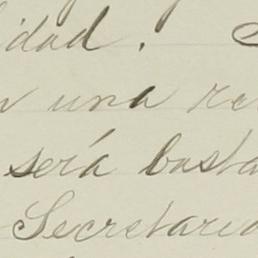 idad.
una re
será basta
Secretaria